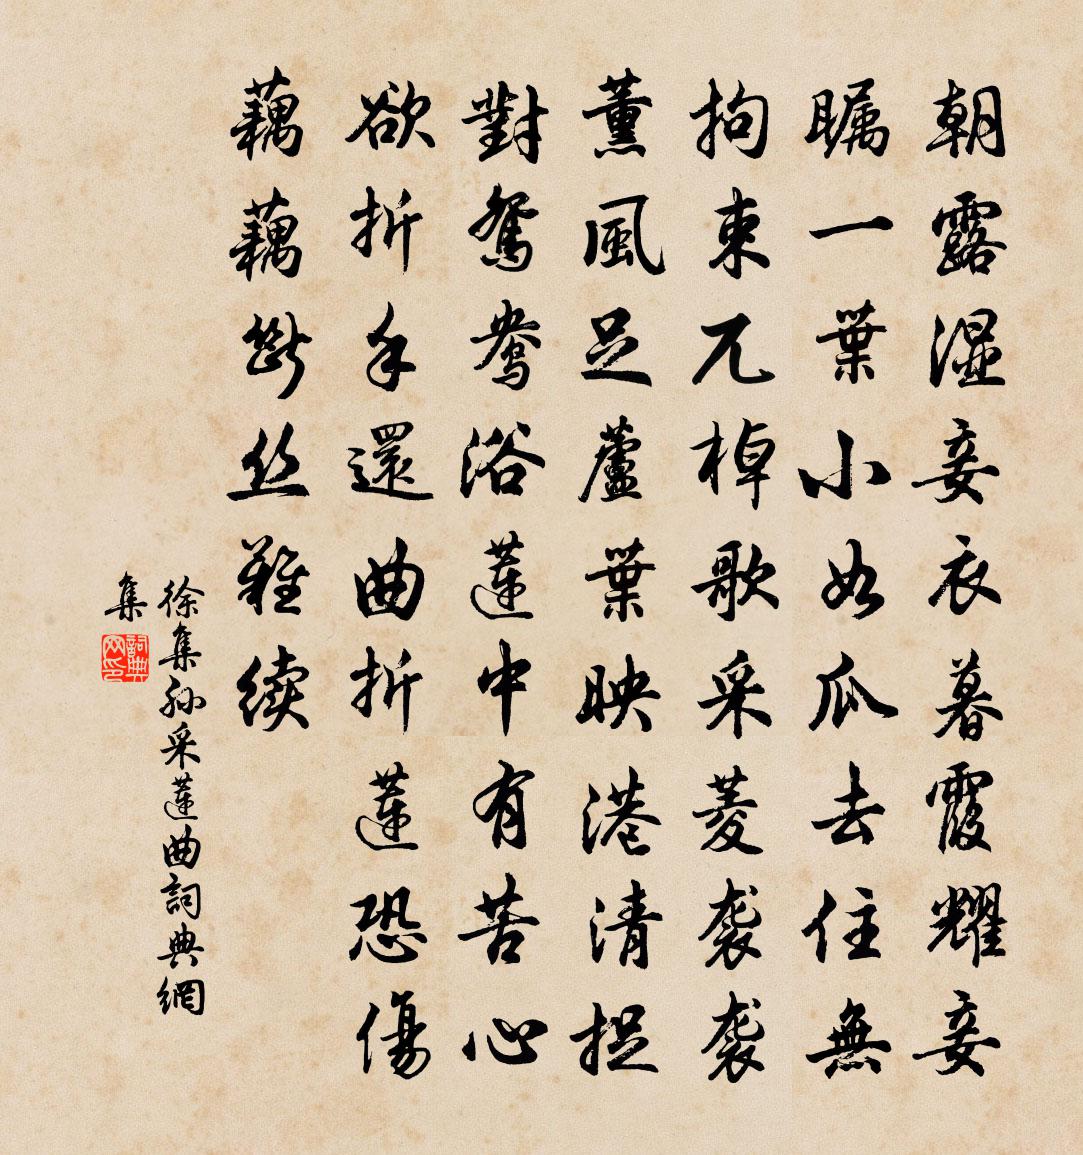 朝露湿妾衣暮霞耀妾
瞩一葉小如瓜去住無
拘束兀棹歌采菱袭袭
薰風足蘆葉映港清捉
對鴛鴦浴蓮中有苦心
欲折手還曲折蓮恐傷
藕藕斷丝難续
徐集孙采蓮曲詞典網
集
詞典
网印